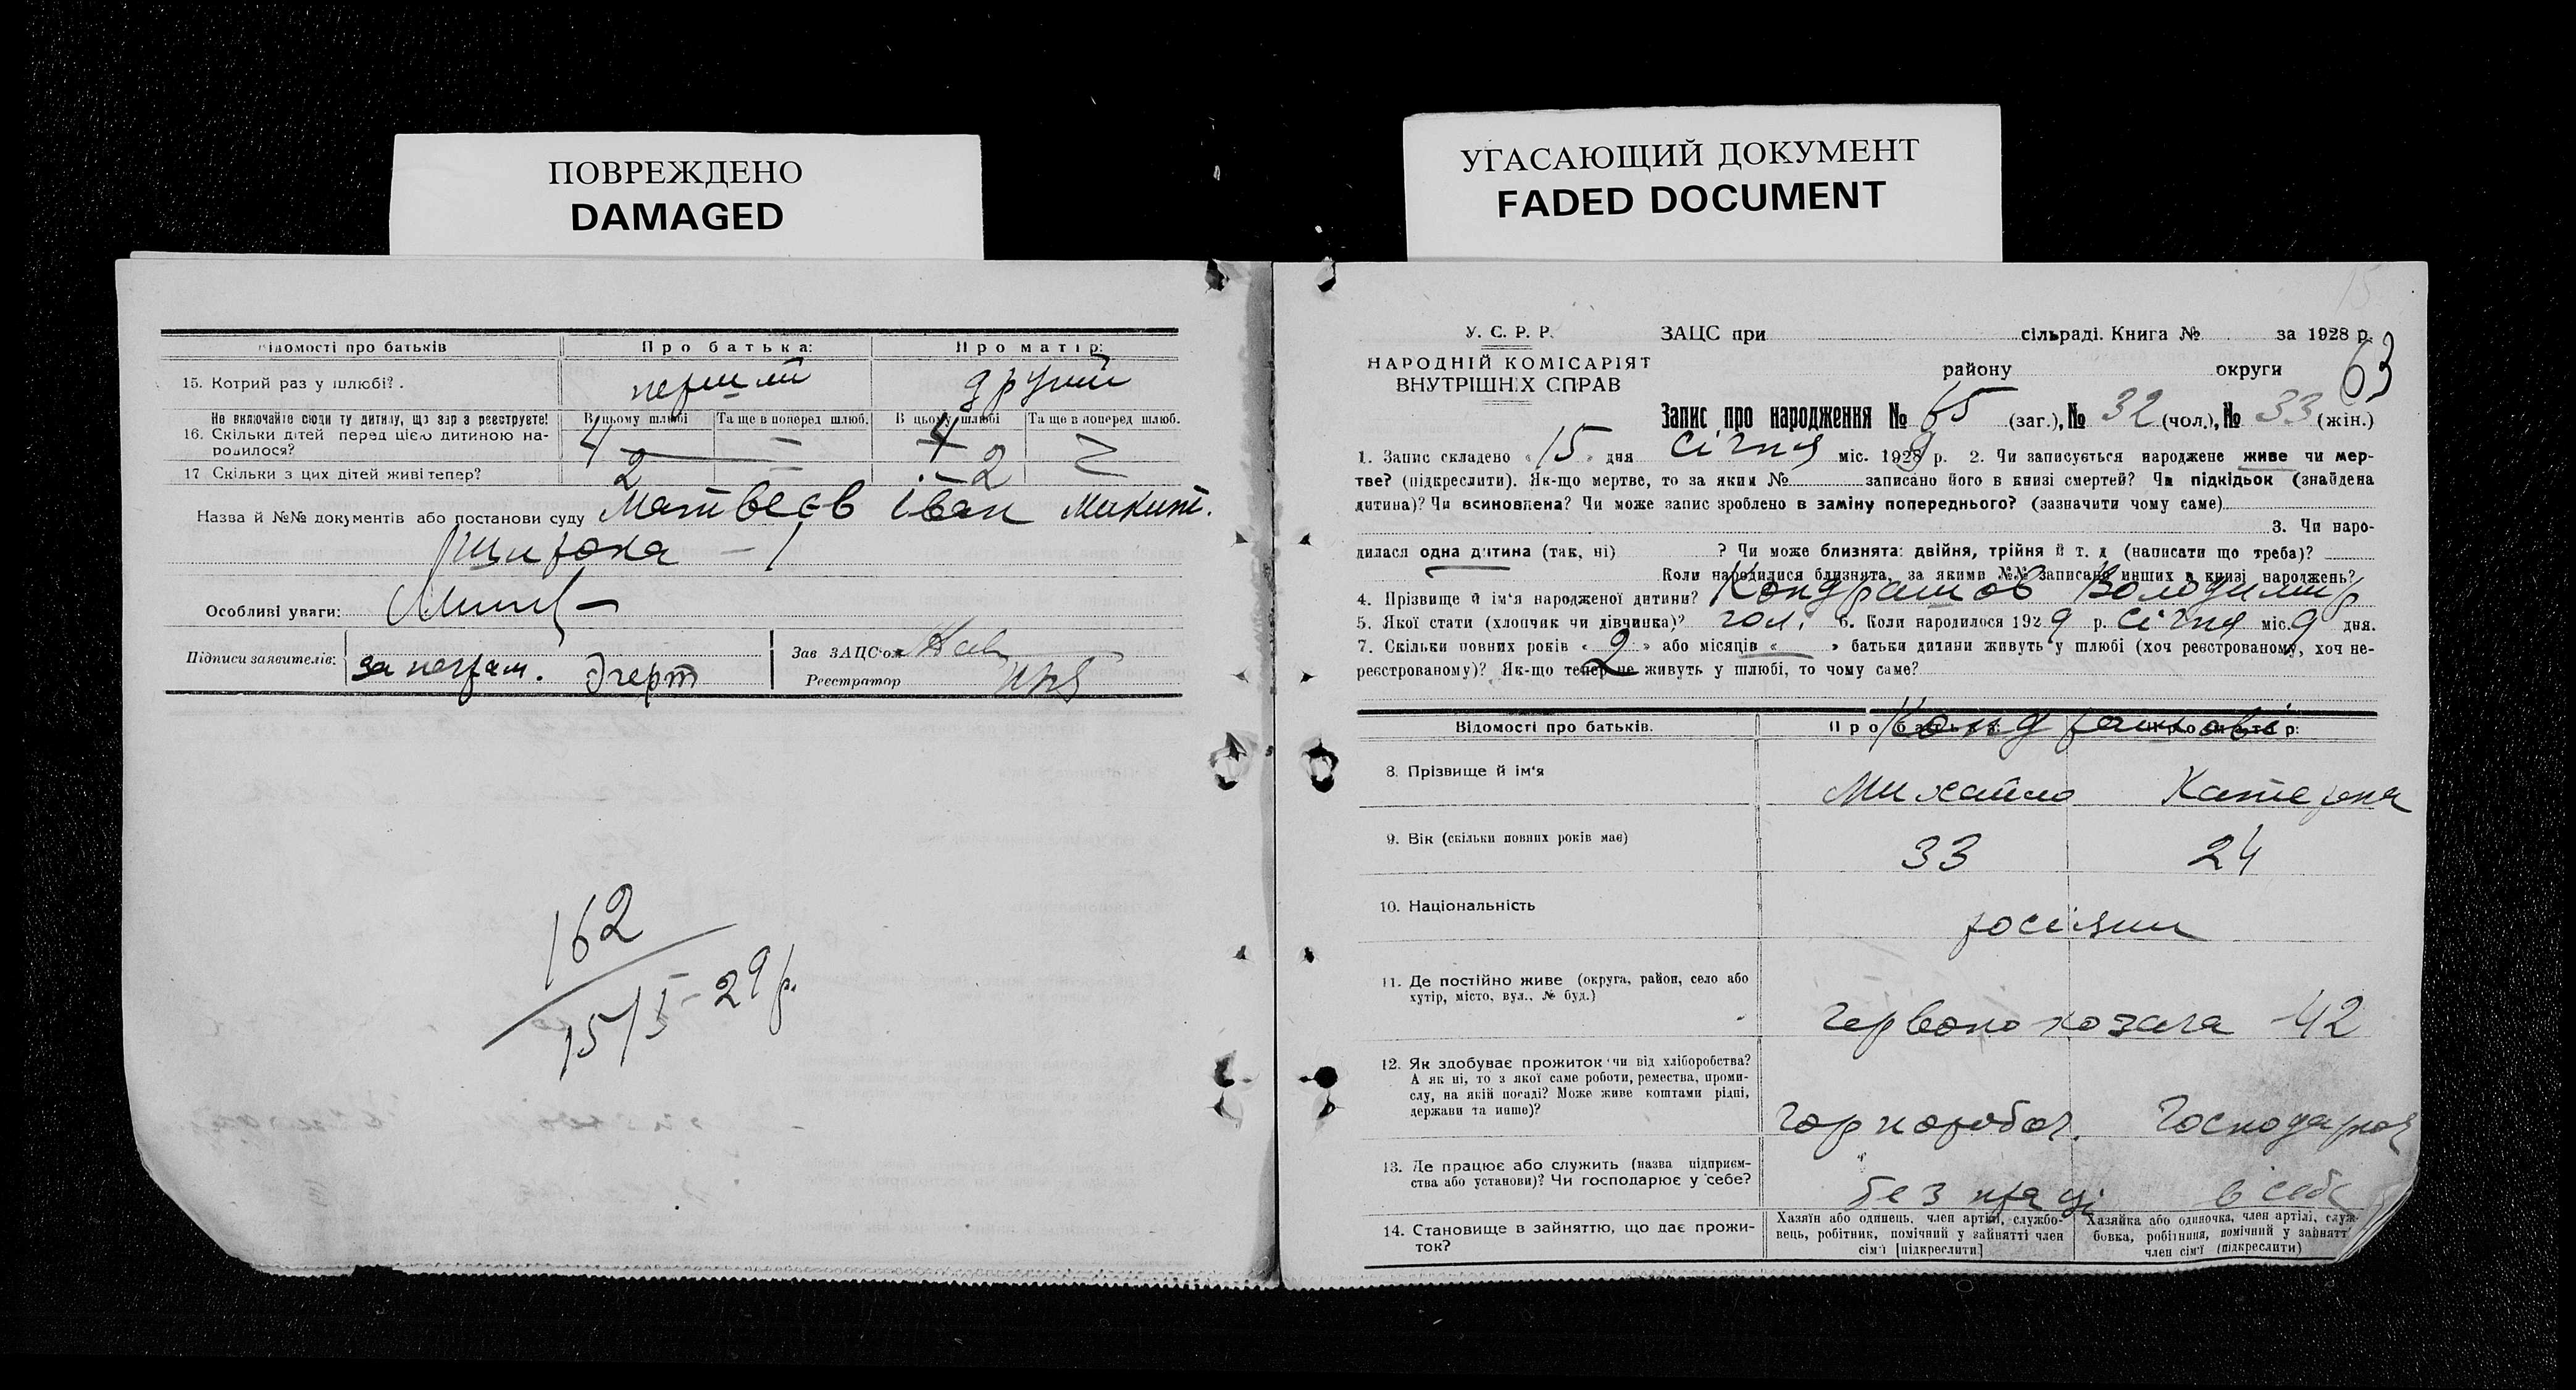 ПОВРЕЖДЕНО
DAMAGED
Відомості про батьків
Про батька:
Про матір:
15. Котрий раз у шлюбі?
перший
другий
Не включайте сюди ту дитину, що зар з реєструєте!
16. Скільки дітей перед цією дитиною на-
родилося?
В цьому шлюбі
Та ще в поперед шлюб.
В цьому шлюбі
Та ще в поперед шлюб.
4
—
4
17 Скільки з цих дітей живі тепер?
2
—
2
Назва й №№ документів або постанови суду Матвеєв Іван Микит.
Широка – 1
Особливі уваги:
Підписи заявителів:
за неграм. Эгерт
Зав ЗАЦС'ом
Реєстратор
162
15/I - 29 р.
УГАСАЮЩИЙ ДОКУМЕНТ
FADED DOCUMENT
15
У. С. Р. Р.
НАРОДНІЙ КОМІСАРІЯТ
ВНУТРІШНІХ СПРАВ
ЗАЦС при сільраді. Книга № за 1928 р.
63
району округи
Запис про народження № 65 (заг.), № 32 (чол.), № 33 (жін.)
1. Запис складено «15» дня січня міс. 1929 р. 2. Чи записується народжене живе чи мер-
тве? (підкреслити). Як-що мертве, то за яким № записано його в книзі смертей? Чи підкідьок (знайдена
дитина)? Чи всиновлена? Чи може запис зроблено в заміну попереднього? (зазначити чому саме)
3. Чи наро-
дилася одна дитина (так, ні) ? Чи може близнята: двійня, трійня й т. д (написати що треба)?
Коли народилися близнята, за якими №№ записано инших в книзі народжень?
4. Прізвище й ім'я народженої дитини? Кондрашов Володимир
5. Якої стати (хлопчик чи дівчинка)? чол. 6. Коли народилося 1929 р. січня міс. 9 дня.
7. Скільки повних років «2» або місяців « » батьки дитини живуть у шлюбі (хоч реєстрованому, хоч не-
реєстрованому)? Як-що тепер не живуть у шлюбі, то чому саме?
Відомості про батьків.
Про батька:
Про матір:
Кондрашові
8. Прізвище й ім'я
Михайло
Катерина
9. Вік (скільки повних років має)
33
24
10. Національність
росіяни
11. Де постійно живе (округа, район, село або
хутір, місто, вул., № буд.)
Червоно козача - 42
12. Як здобуває прожиток чи від хліборобства?
А як ні, то з якої саме роботи, ремества, проми-
слу, на якій посаді? Може живе коштами рідні,
держави та инше)?
Чорнороboч.
Господарка
13. Де працює або служить (назва підприєм-
ства або установи)? Чи господарює у себе?
без праці
в себе
14. Становище в зайняттю, що дає прожи-
ток?
Хазяїн або одинець, член артілі, службо-
вець, робітник, помічний у зайнятті член
сім'ї [підкреслити]
Хазяйка або одиночка, член артілі, служ-
бовка, робітниця, помічний у зайнятт
член сім'ї (підкреслити)